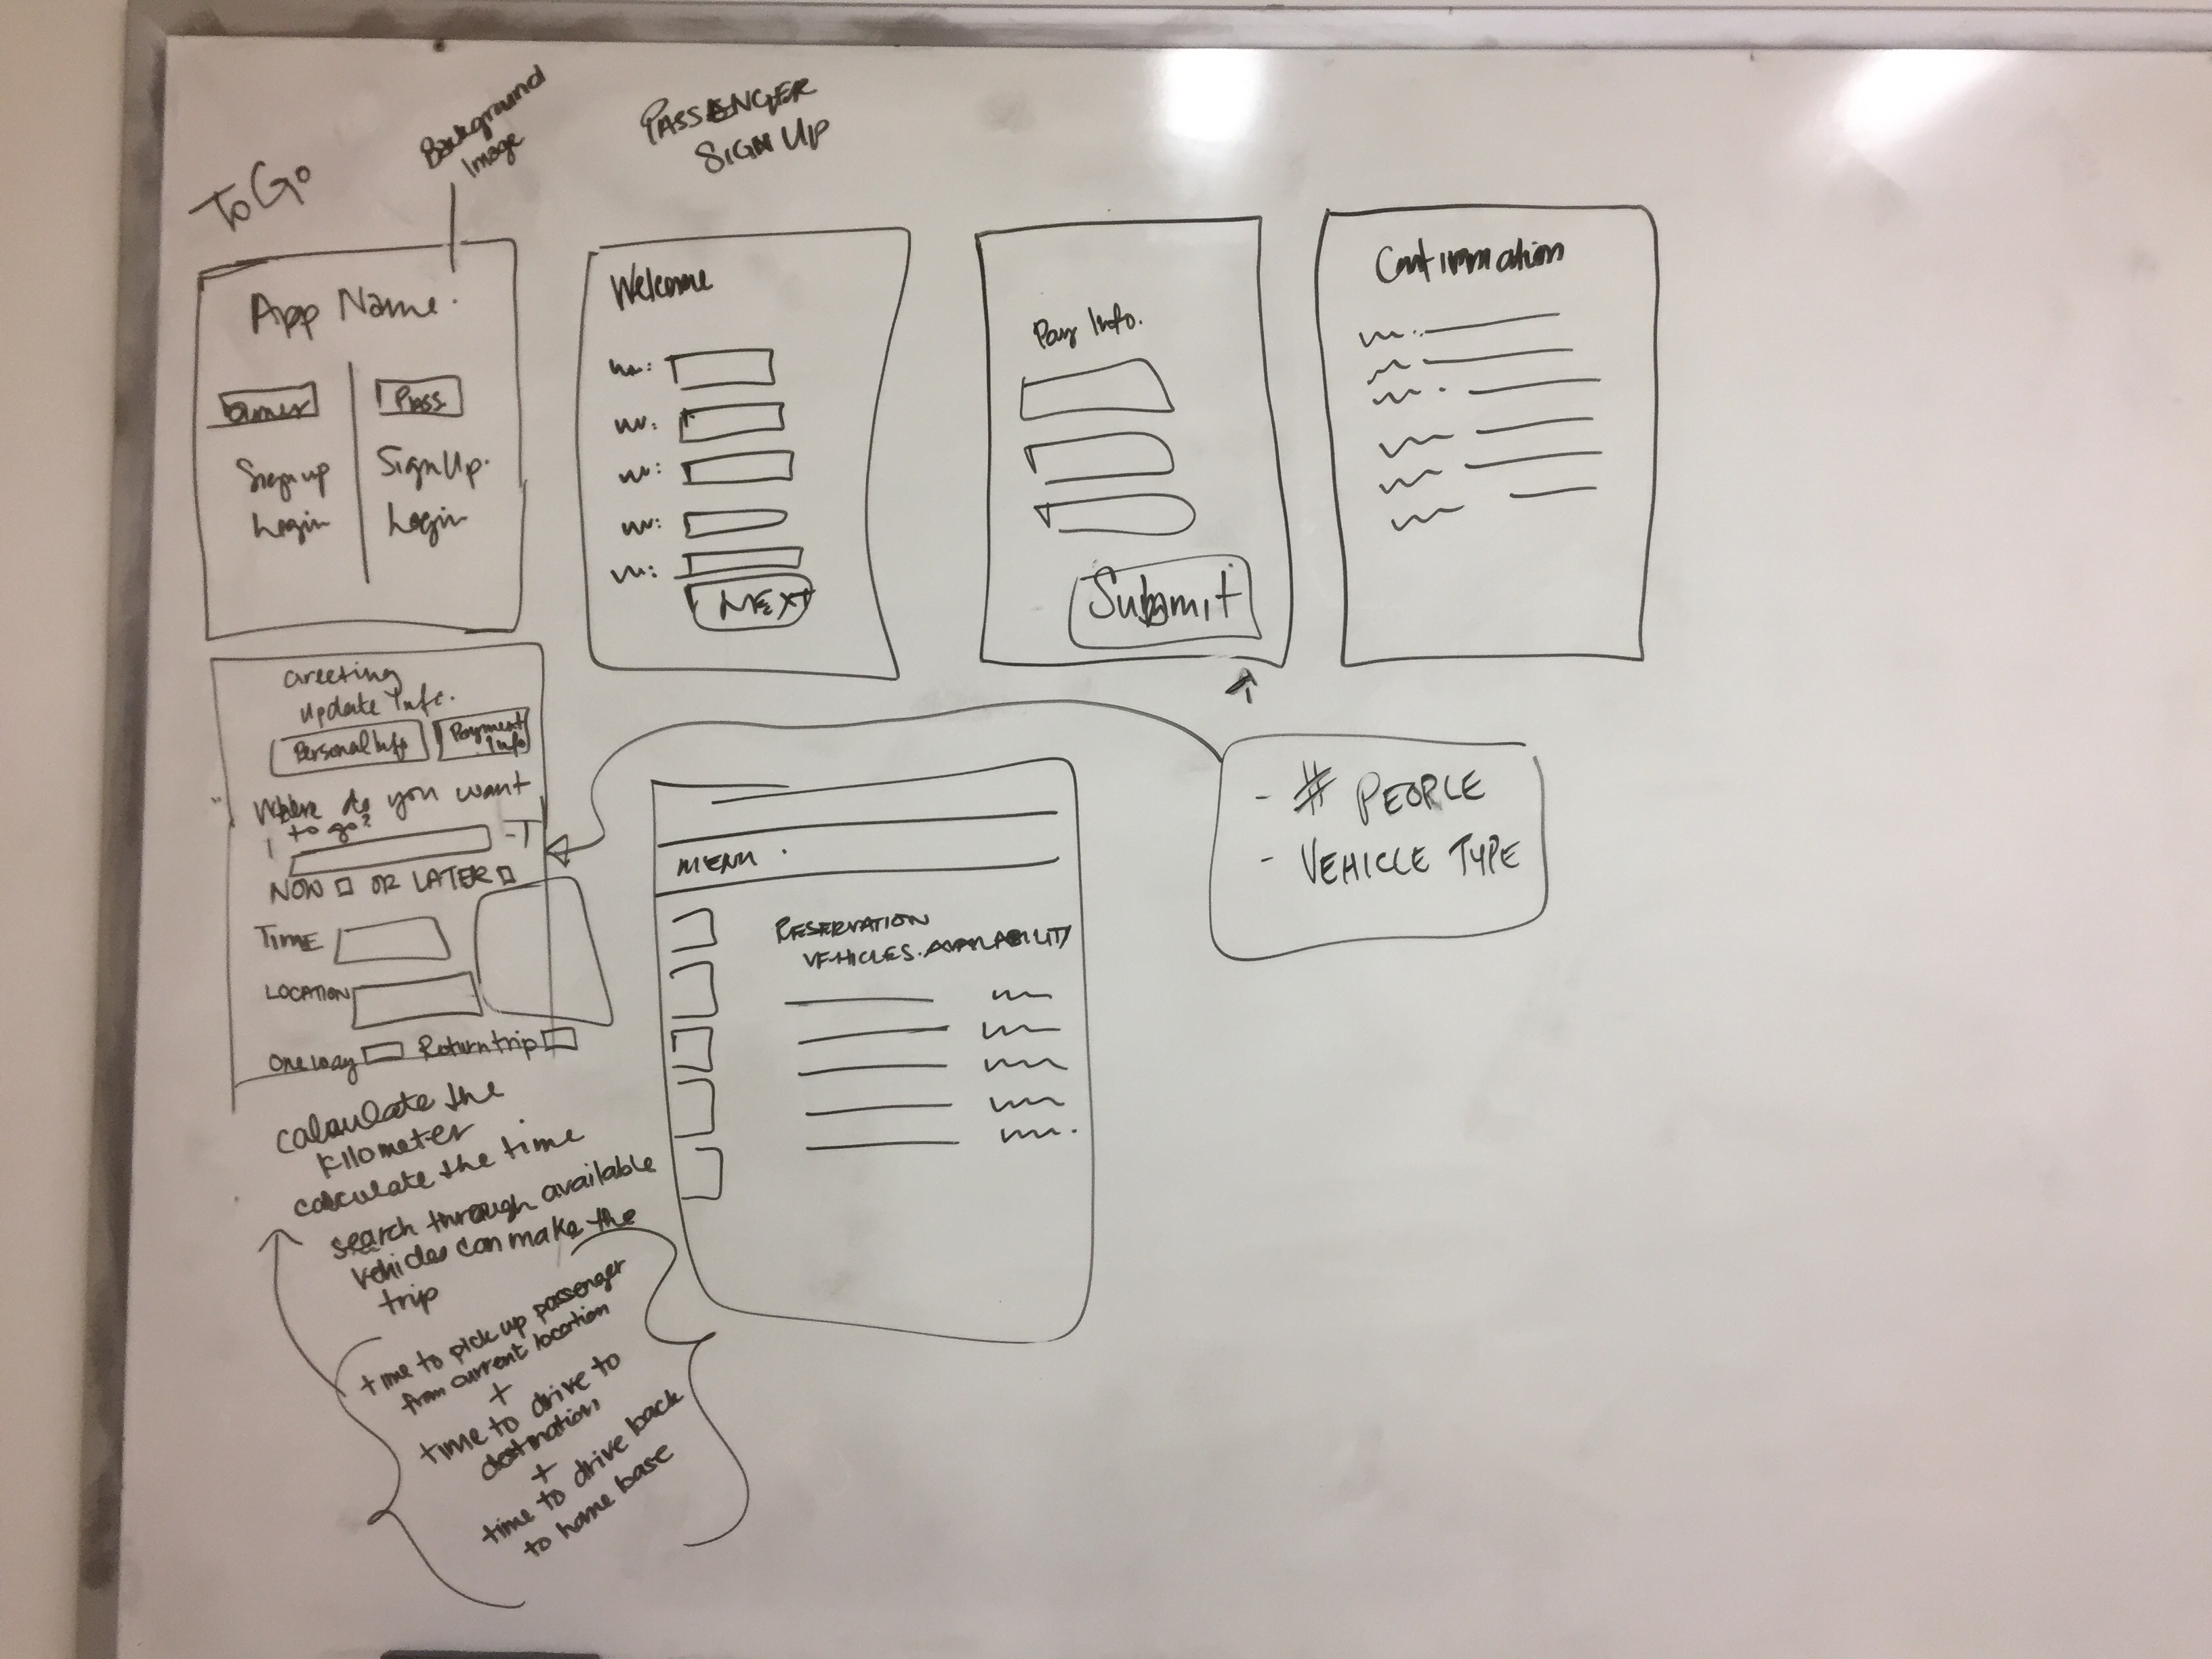 ToGo
Background
Image
PASSENGER
SIGN UP
App Name.
Pass.
Sign up
Login
Sign Up.
Login
Welcome
NEXT
Pay Info.
Submit
Confirmation
Greeting
update Info.
Personal Info
Payment
Info
Where do you want
to go?
NOW OR LATER
TIME
LOCATION
One way Return trip
- # PEOPLE
- VEHICLE TYPE
MENU
RESERVATION
VEHICLES. AVAILABILITY
calculate the
kilometer
calculate the time
search through available
vehicles can make the
trip
time to pick up passenger
from current location
+
time to drive to
destination
+
time to drive back
to home base